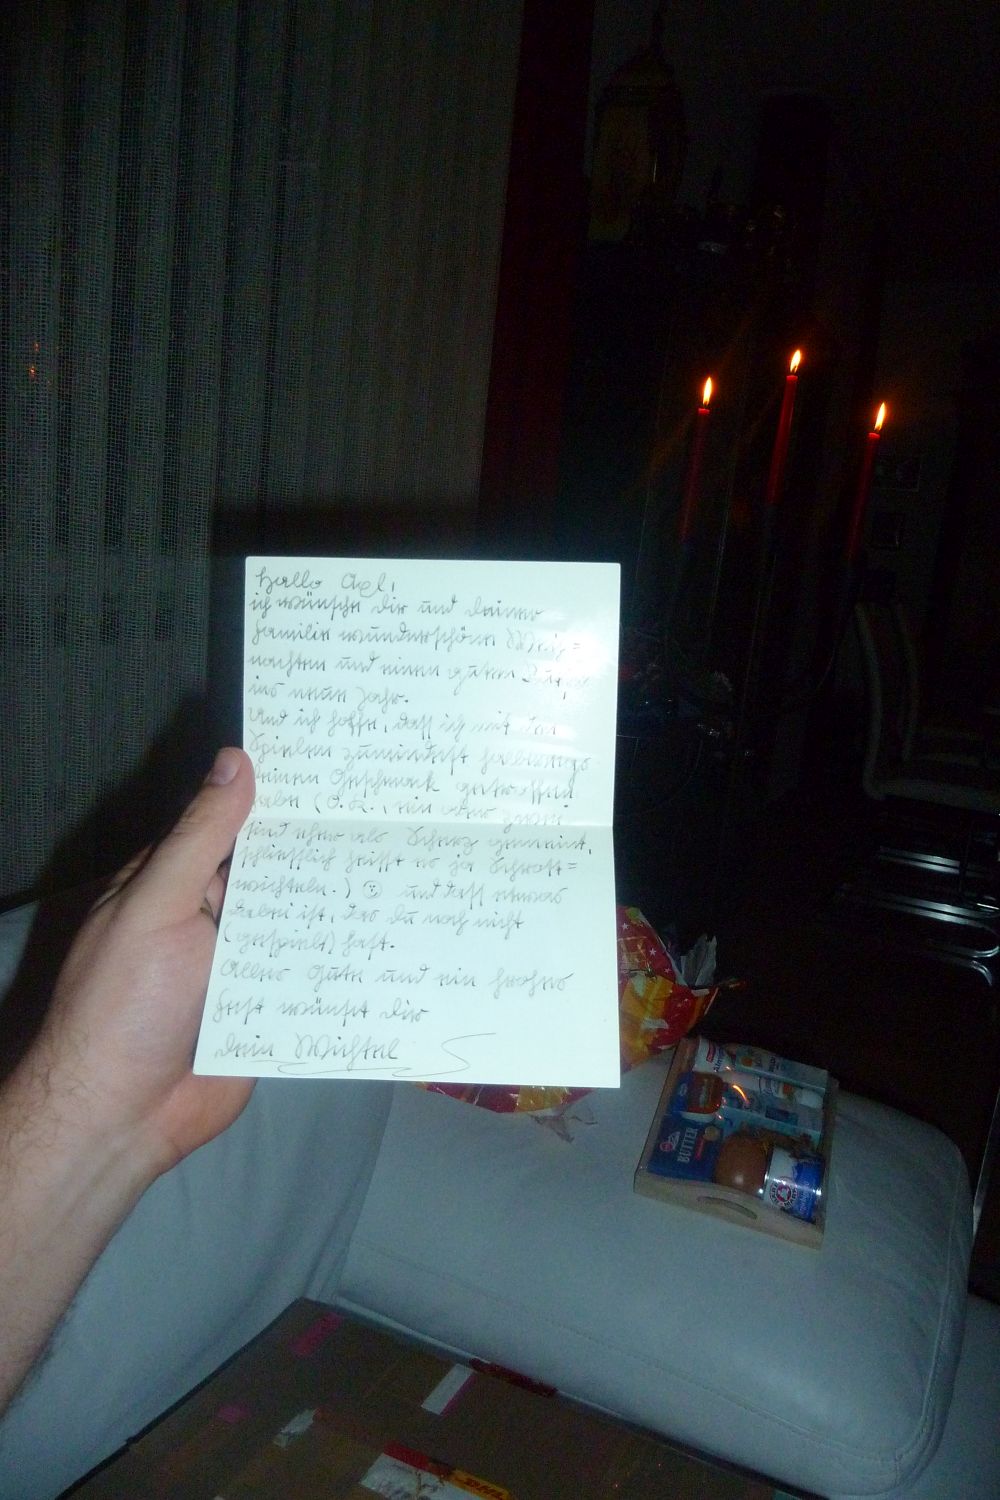 Hallo Axl!
ich wünsche Dir und Deiner
Familie wunderschöne Weih=
nachten und einen guten Rutsch
ins neue Jahr.
Und ich hoffe, dass ich mit den
Spielen zumindest halbwegs
Deinen Geschmack getroffen
habe (O.K., ein oder zwei
sind eher als Scherz gemeint,
schliesslich heisst es ja Schrott=
wichteln.) ☺ und dass etwas
dabei ist, das Du noch nicht
(gespielt) hast.
Alles Gute und ein frohes
Fest wünscht Dir
Dein Wichtel
BUTTER
DHL